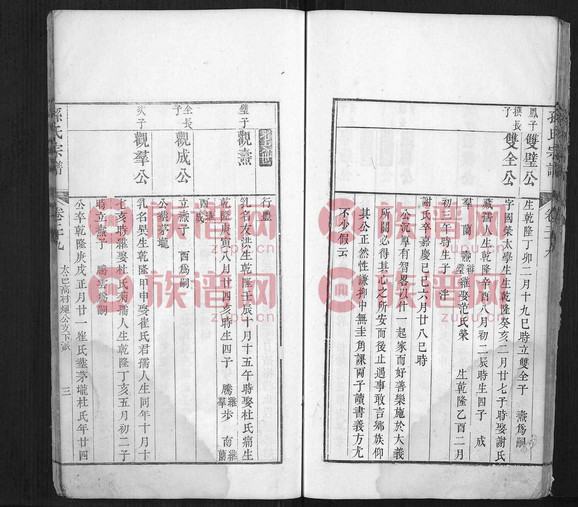 孫氏宗譜
卷二十九
鳳子
雙璧公
生乾隆丁卯二月十九巳時立雙全子 燕爲嗣
長子
雙全公
字國榮太學生生乾隆癸亥二月廿七子時娶謝氏
孺人生乾隆辛酉八月初二辰時生四子 成
羣 蘭 娶范氏榮 生乾隆乙酉二月
初一午時生子 注
謝氏卒嘉慶己巳六月廿八巳時
公沉厚有智畧以什一起家而好善樂施於大義
所關必得其心之所安而後止遇事敢言鄉族仰
其公正然性謙抑中無圭角課兩子讀書義方尤
不少假云
璧子
觀燕
行
乳名友洪生乾隆壬辰十月十五午時娶杜氏
乾隆庚寅八月廿四亥時生四子 騰 步 南
全長子
觀成公
立燕子 酉爲嗣
公
次子
觀羣公
乳名異生乾隆甲申娶崔氏君孺人生同年十月十
七亥時繼娶杜氏菊孺人生乾隆丁亥五月初二子
時立燕子 騰爲嗣
公卒乾隆庚戌正月廿一 崔氏葬茅壠杜氏年廿四
孫氏宗譜
卷二十九
三
族谱网
zupu.cn
族谱网
zupu.cn
族谱网
zupu.cn
族谱网
zupu.cn